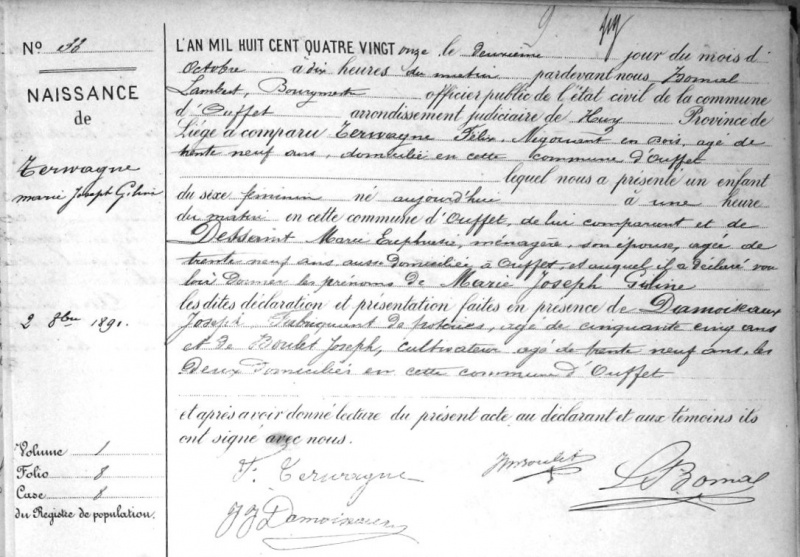 9
No
NAISSANCE
de
Terwagne
Marie Joseph
2 8bre 1891.
Volume 1
Folio 8
Case 8
du Registre de population.
L'AN MIL HUIT CENT QUATRE VINGT onze le deuxième jour du mois d'
Octobre à dix heures du matin pardevant nous Bomal
Lambert, Bourgmestre officier public de l'état civil de la commune
d'Ouffet arrondissement judiciaire de Huy Province de
Liége a comparu Terwagne Félix, Négociant en Bois, agé de
trente neuf ans, domicilié en cette commune d'Ouffet
lequel nous a présenté un enfant
du sexe feminin né aujourd'hui à une heure
du matin en cette commune d'Ouffet, de lui comparant et de
Dessaint Marie Euphrasie, ménagère, son épouse, agée de
trente neuf ans aussi domiciliée à Ouffet, et auquel il a déclaré vou
loir donner les prénoms de Marie Joseph
les dites déclaration et présentation faites en présence de Damoiseaux
Joseph Fabriquant de poteries, agé de cinquante cinq ans
et de Boulet Joseph, cultivateur agé de trente neuf ans, les
Deux domiciliés en cette commune d'Ouffet
et après avoir donné lecture du présent acte au déclarant et aux témoins ils
ont signé avec nous.
F. Terwagne
Boulet
L Bomal
JJ Damoiseaux